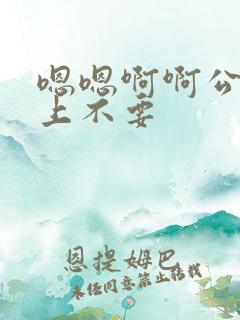 嗯嗯啊啊公
上不要
恩提姆巴
未经同意禁止转载